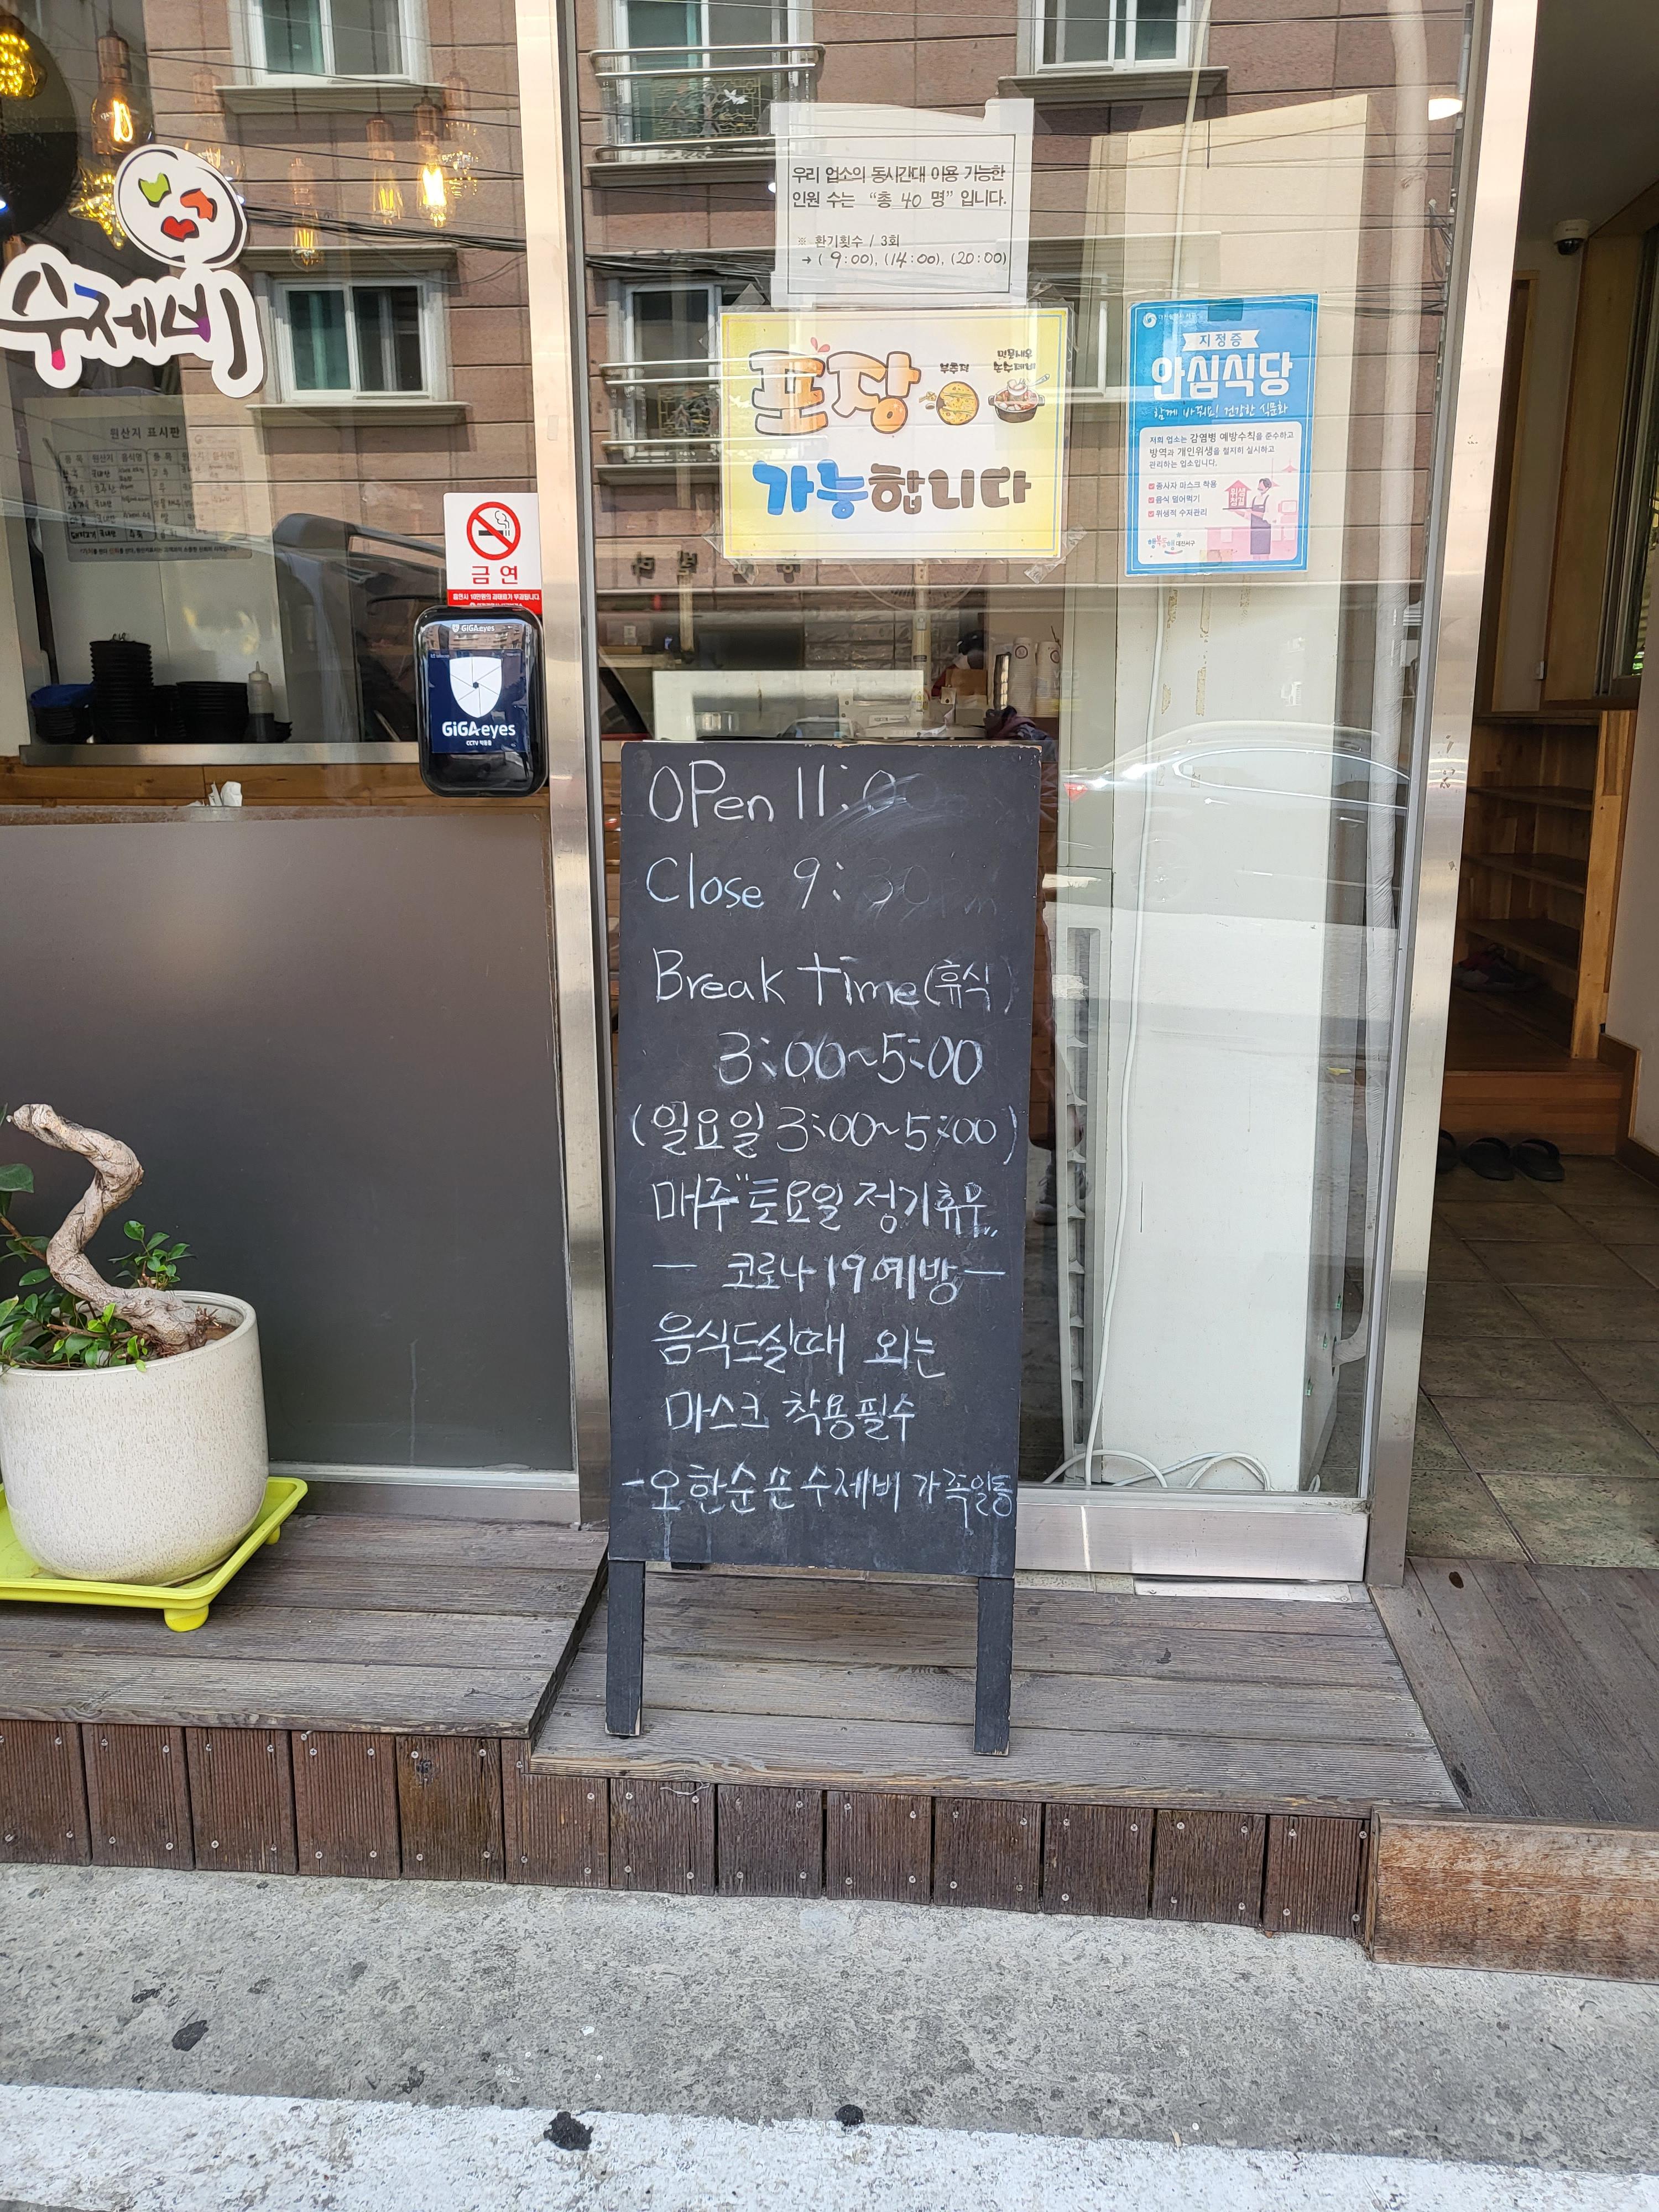 수제비
원산지 표시판
금연
GiGAeyes
GiGAeyes
우리 업소의 동시간대 이용 가능한
인원 수는 "총 40 명" 입니다.
※ 환기횟수 / 3회
→ ( 9:00), (14:00), (20:00)
포장
부추전
가능합니다
지정증
안심식당
함께 바꿔요! 건강한 식문화
저희 업소는 감염병 예방수칙을 준수하고
방역과 개인위생을 철저히 실시하고
관리하는 업소입니다.
종사자 마스크 착용
음식 덜어먹기
위생적 수저관리
대전서구
OPen 11:0
Close 9:30pm
Break time(휴식)
3:00~5:00
(일요일 3:00~5:00)
매주"토요일 정기휴무"
- 코로나19예방 -
음식드실때 외는
마스크 착용필수
-오한순손수제비 가족일동